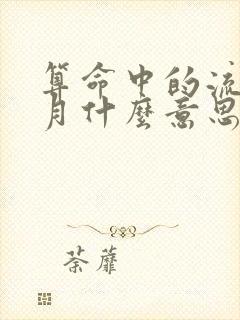 算命中的流
月什麼意思
荼蘼